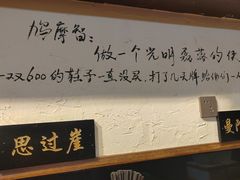 鸠摩智:
做一个光明磊落的
一双600的鞋子一直没买,打了几天牌
思过崖
曼